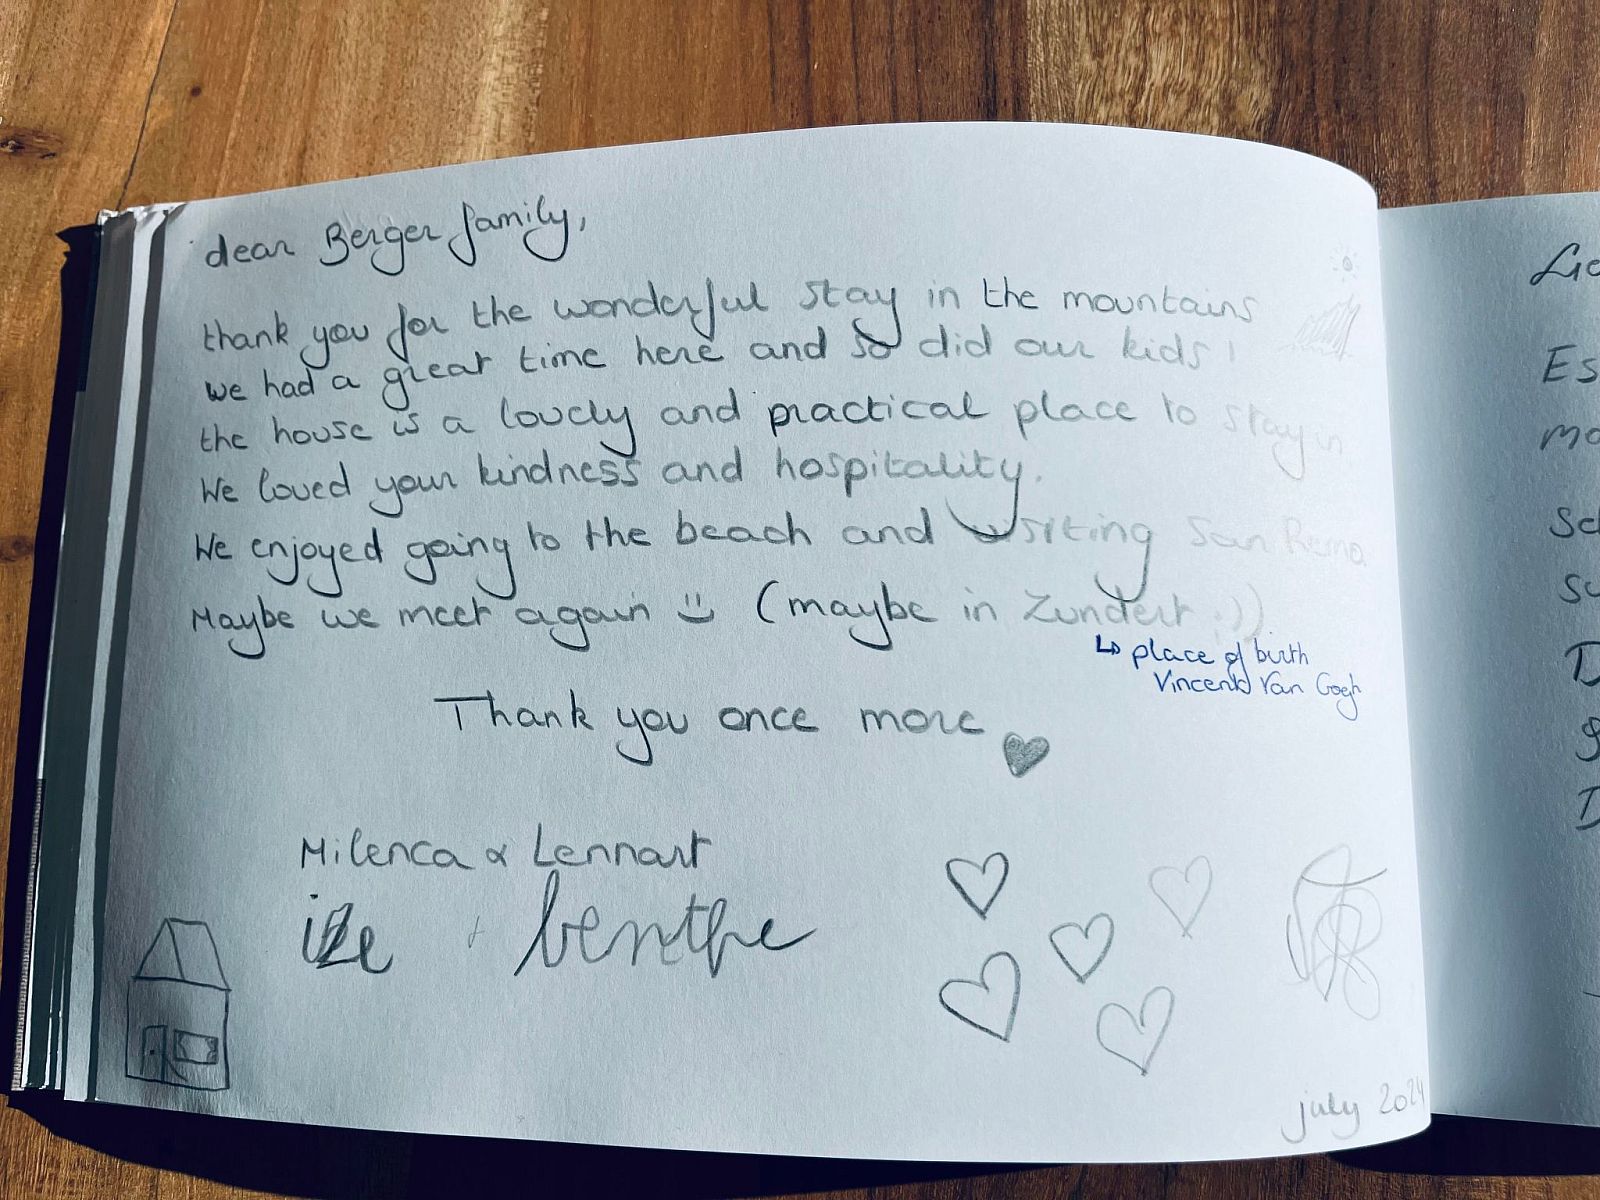 dear Berger family,
thank you for the wonderful stay in the mountains
we had a great time here and so did our kids!
the house is a lovely and practical place to stay in
We loved your kindness and hospitality.
We enjoyed going to the beach and visiting San Remo
Maybe we meet again :) (maybe in Zundert :))
↳ place of birth
Vincent Van Gogh
Thank you once more ♥
Milenca & Lennart
+ benthe
july 2024
Es